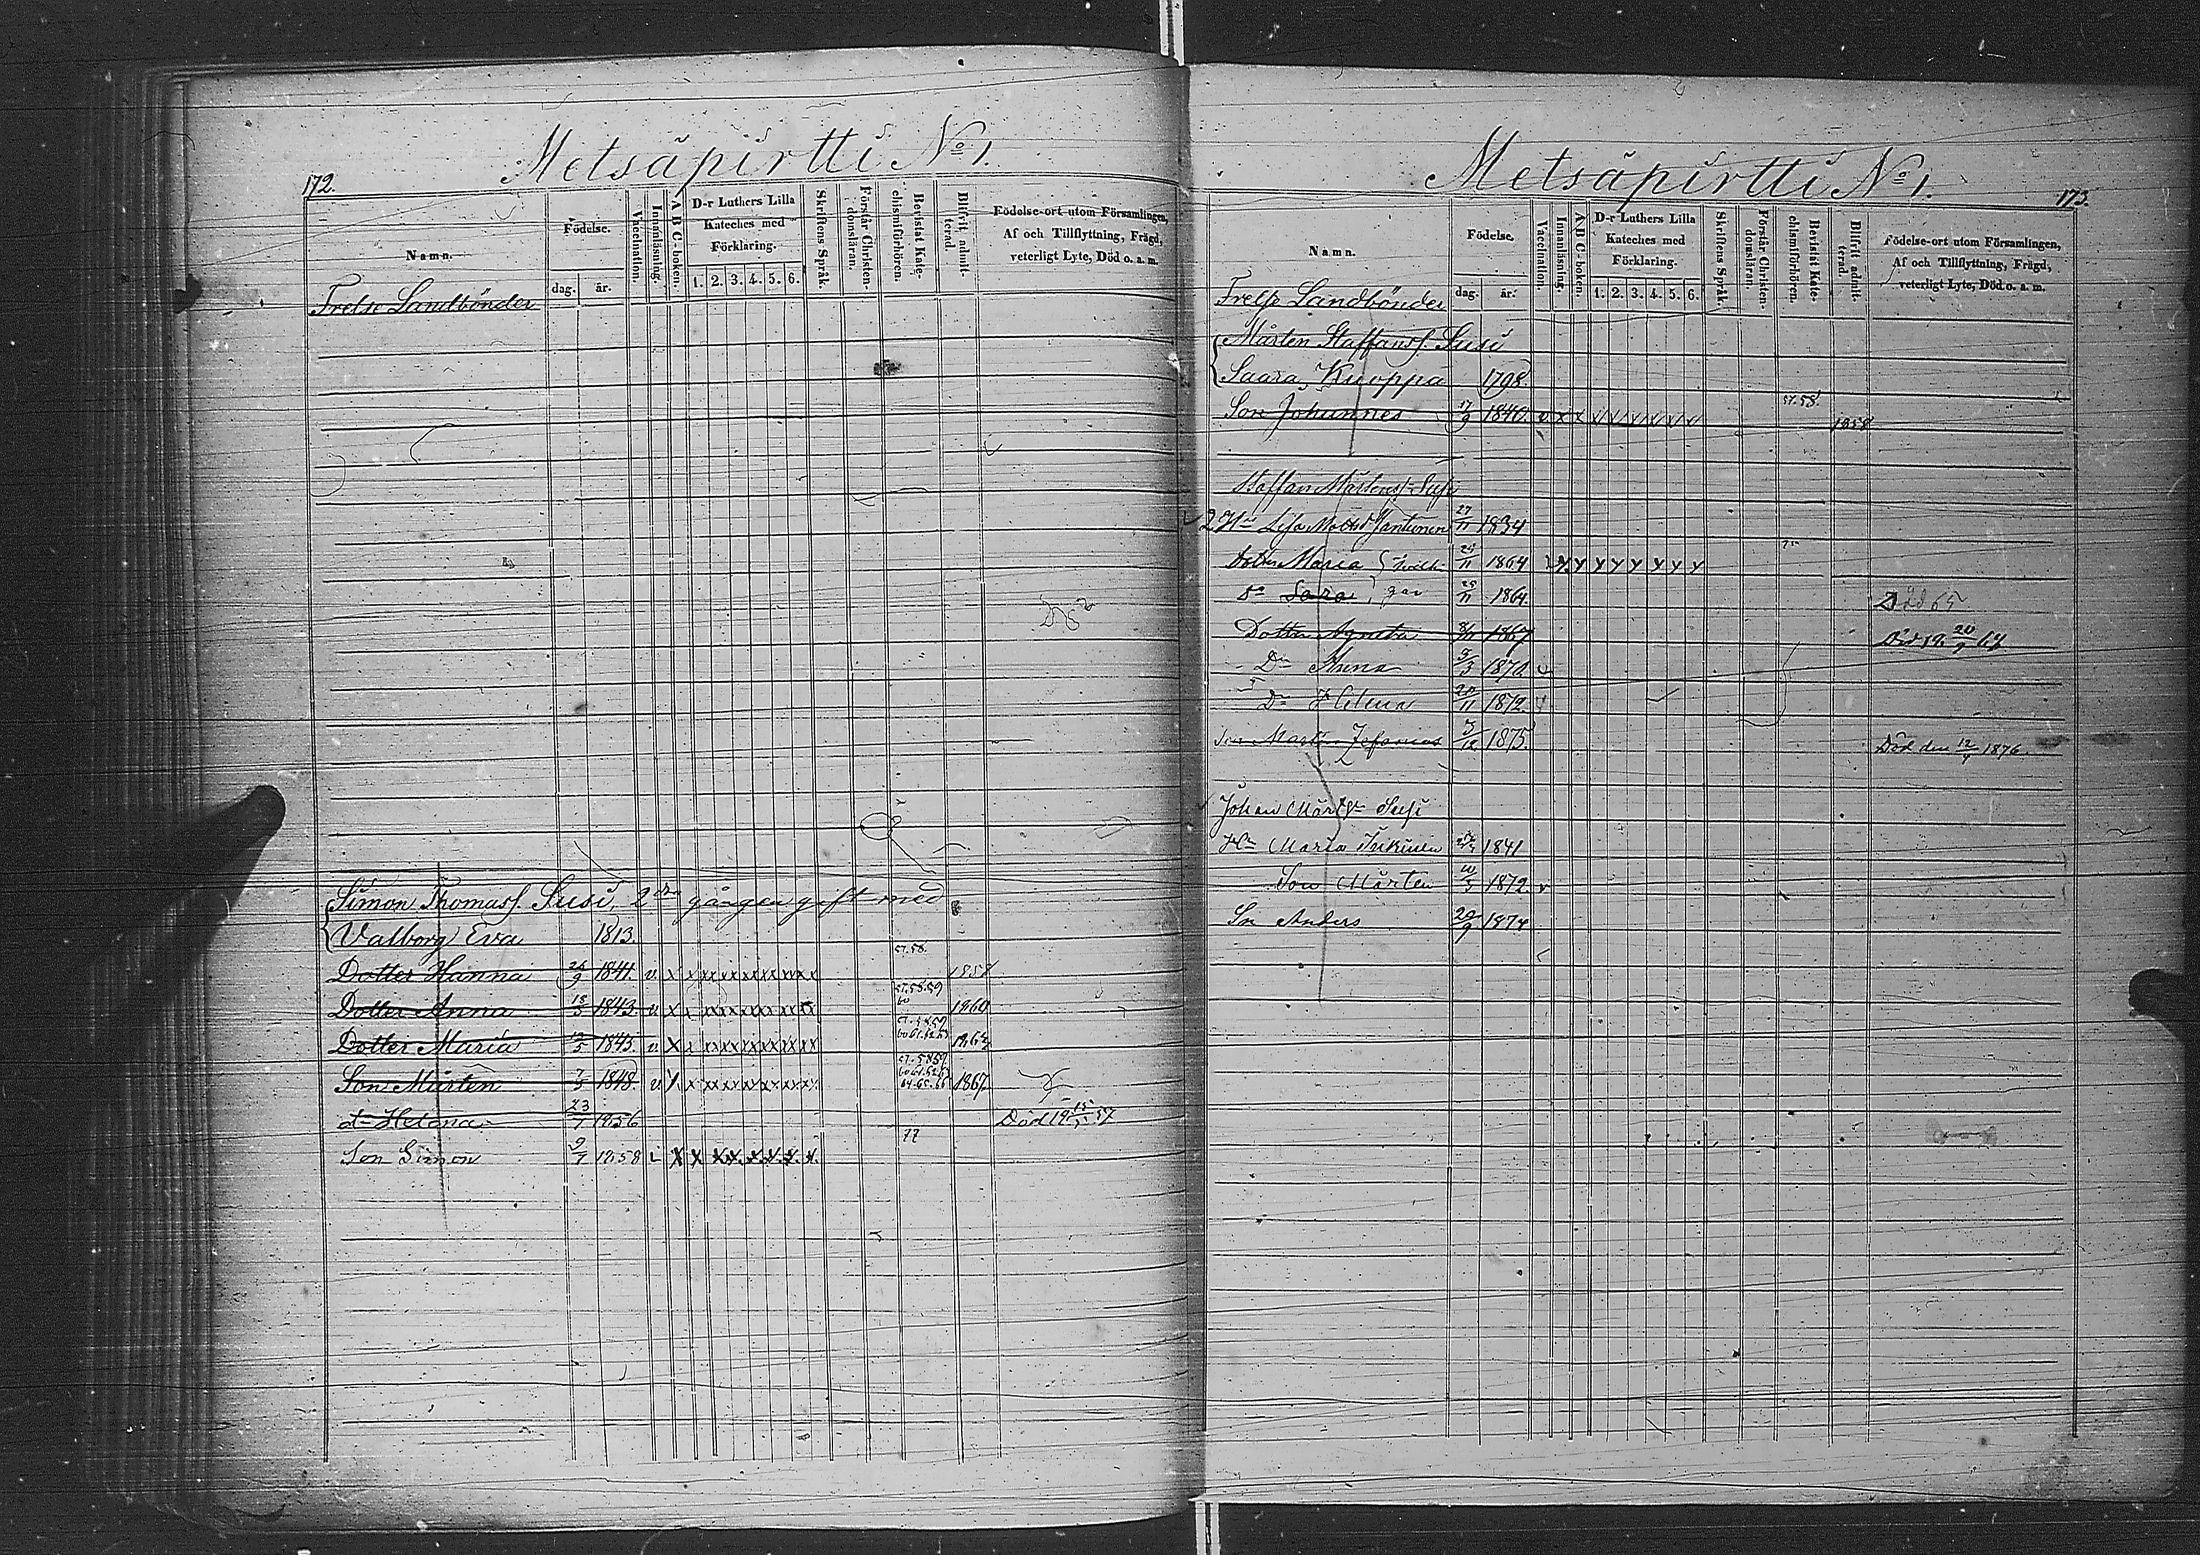 172.
Metsäpirtti No 1.
Namn.
Födelse.
dag.
år.
Vaccination.
Innanläsning.
A B C-boken.
D-r Luthers Lilla
Kateches med
Förklaring.
1. 2. 3. 4. 5. 6.
Skriftens Språk.
Förstår Christen-
domsläran.
Bevistat Kate-
chismiförhören.
Blifvit admit-
terad.
Födelse-ort utom Församlingen,
Af och Tillflyttning, Frägd,
veterligt Lyte, Död o. a. m.
Frelse Landbönder
Simon Thomass. Susi, 2dra gången gift med
Valborg Eva 1813.
57.58.
Dotter Hanna 26/9 1841. v. x x x x x x x x x x 1858
57.58.59
60
Dotter Anna 18/5 1843. v. x x x x x x x x x x 1860
60 61.62.63
Dotter Maria 1845. v. x x x x x x x x x x
57.58 59
60 61.62.63
64.65.66
Son Mårten 7/5 1848. v x x x x x x x x x x 1867
d:r Helena 23/7 1856 Död 18 15/5 57
77
Son Simon 9/7 1858 x x x x x x x x
173.
Metsäpirtti No 1.
Namn.
Födelse.
dag.
år.
Vaccination.
Innanläsning.
A B C-boken.
D-r Luthers Lilla
Kateches med
Förklaring.
1. 2. 3. 4. 5. 6.
Skriftens Språk.
Förstår Christen-
domsläran.
Bevistat Kate-
chismiförhören.
Blifvit admit-
terad.
Födelse-ort utom Församlingen,
Af och Tillflyttning, Frägd,
veterligt Lyte, Död o. a. m.
Frelse Landbönder
Mårten Staffanss. Susi
Saara Kuoppa 1798.
57.58.
Son Johannes 17/9 1840. v x x x x x x x x 1858
Staffan Mårtenss. Susi
2 H:u Lisa Jantunen 27/11 1834
Dotter Maria 25/11 1864 x x x x x x x x
D:o Sara 25/11 1864. Död 65
Dotter Agneta 1867
D:r Anna 9/3 1870. v
D:r Helena 20/11 1872.
Son Johannes 1875. Död den 12/4 1876
Johan Mårt. Susi
H:u Maria Inkinen 1841
Son Mårten 1872. v
Sn Anders 29/9 1874